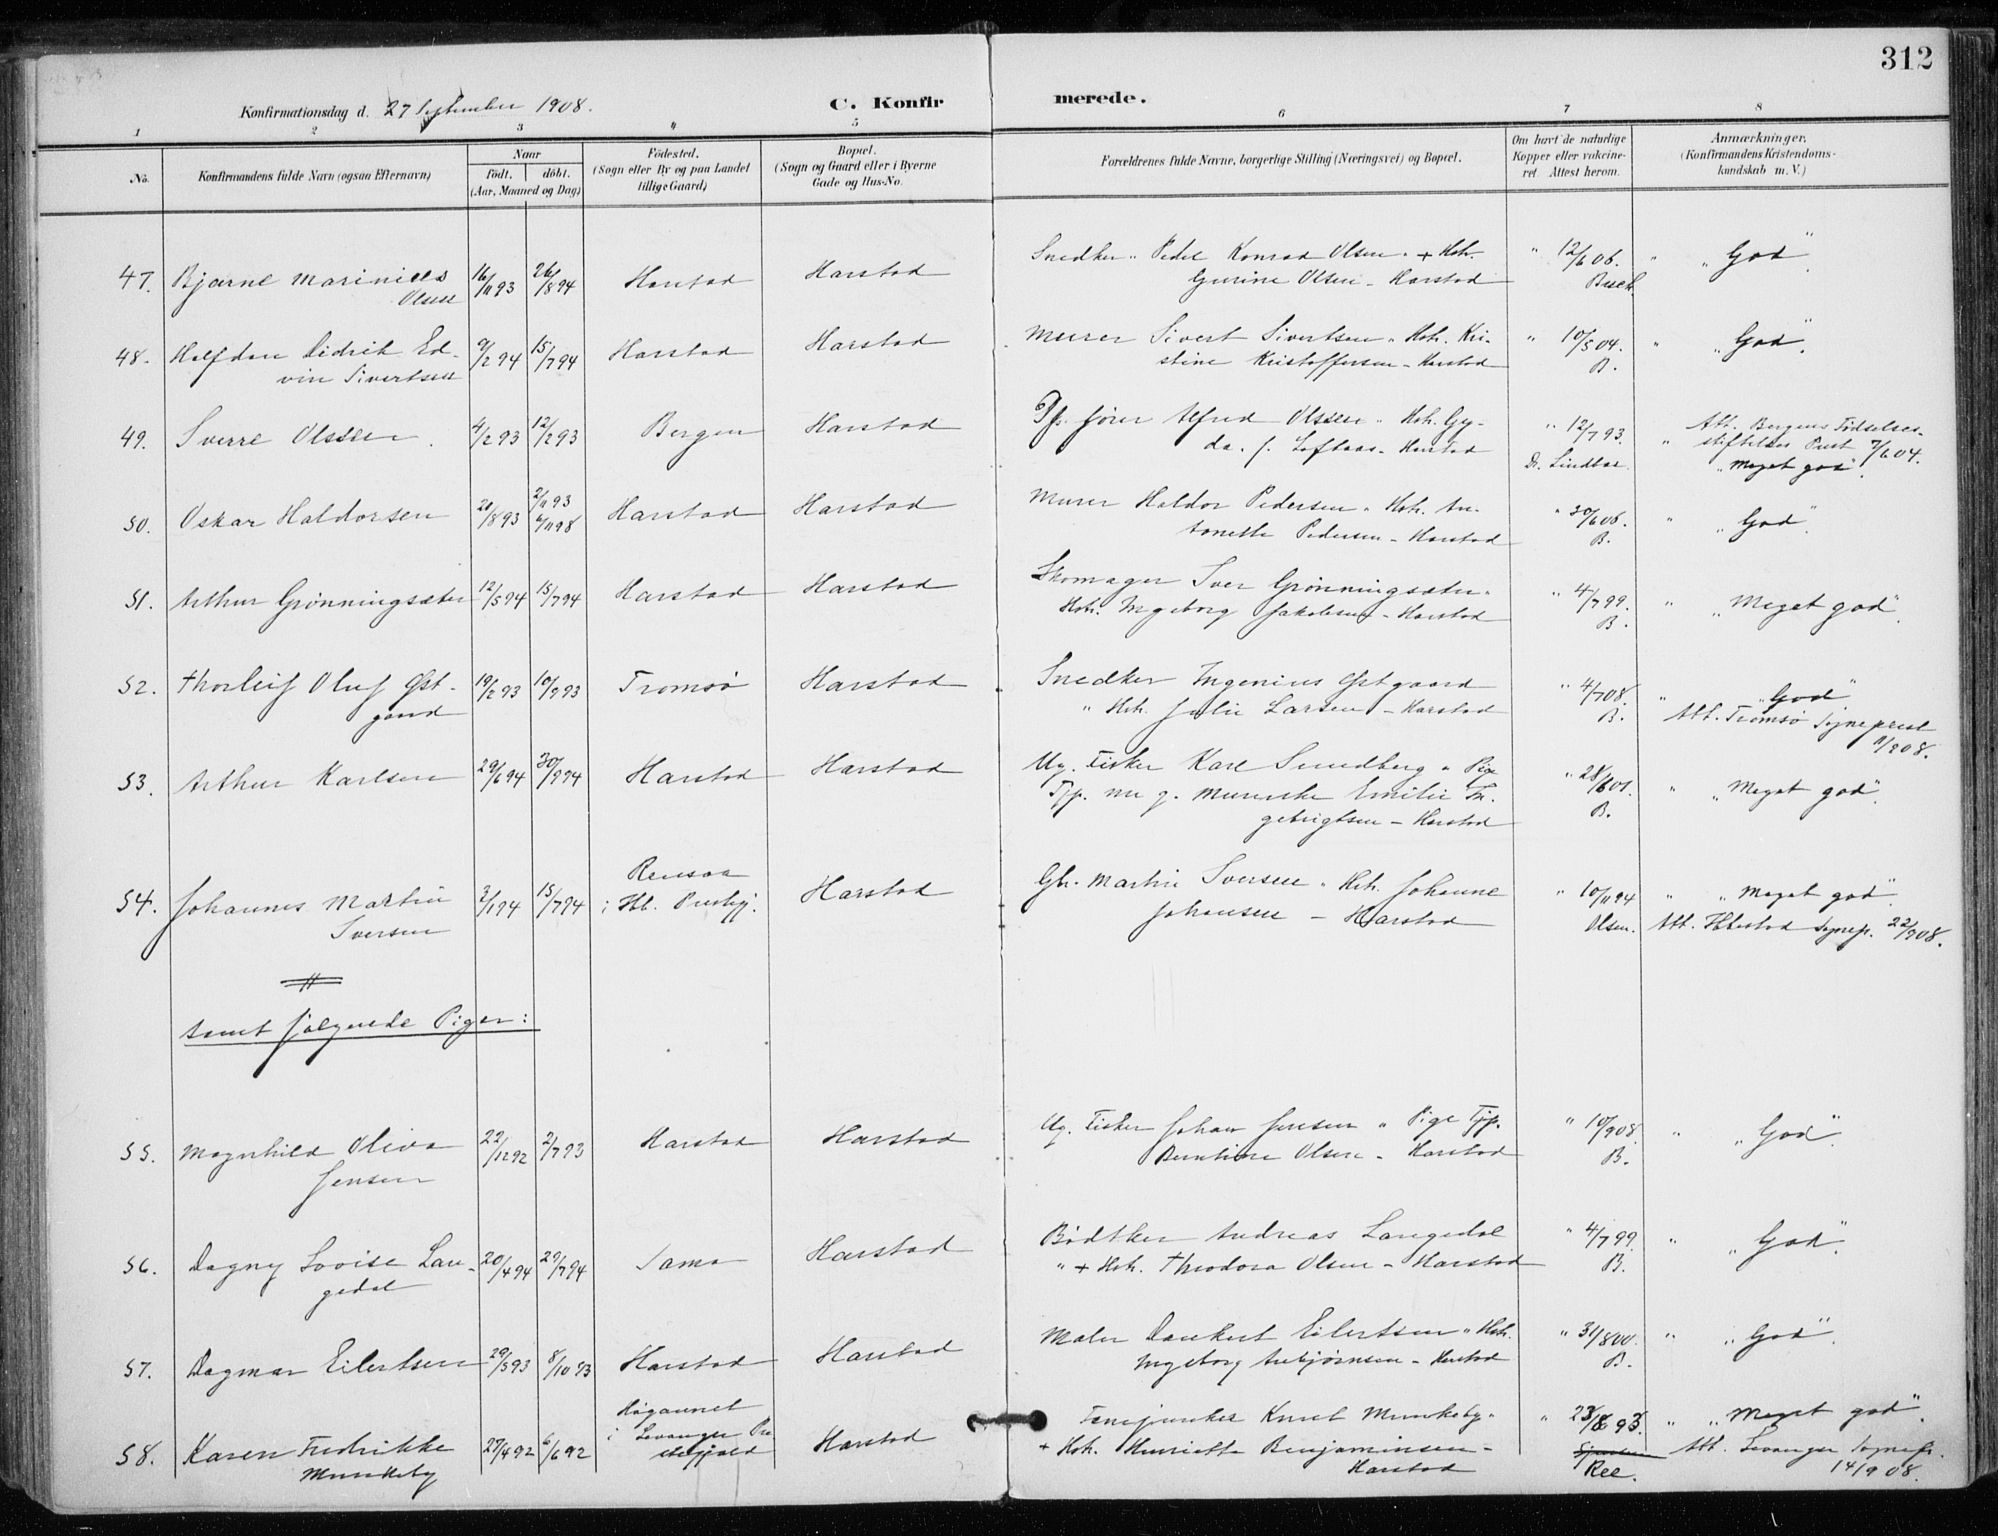 312
Konfirmationsdag d. 27 September 1908.
C. Konfirmerede.
1 2 3 " 5 6 7 8
No.
Konfirmandens fulde Navn (ogsaa Efternavn)
Naar
født. døbt.
(Aar, Maaned og Dag)
Fødested.
(Sogn eller By og paa Landet
tillige Gaard)
Bopæl.
(Sogn og Gaard eller i Byerne
Gade og Hus-No.
Forældrenes fulde Navne, borgerlige Stilling (Næringsvei) og Bopæl.
Om havt de naturlige
Kopper eller vakcine-
ret. Attest herom.
Anmærkninger.
(Konfirmandens Kristendoms-
kundskab m. V.)
47. Bjarne Marinius 16/11 93 26/8 94 Harstad Harstad Snedker " Peder Konrad Olsen " + Hstr. " 12/6 06. " "God".
Olsen Gurine Olsen - Harstad Buch.
48. Halfdan Didrik Ed- 9/2 94 15/7 94 Harstad Harstad Murer Sivert Sivertsen " Hstr. Kri- " 10/5 04. " "God".
vin Sivertsen stine Kristoffersen - Harstad B.
49. Sverre Olssen. 4/2 93 12/2 93 Bergen Harstad fører Alfred Olssen " Hstr. Gy- " 12/7 93. " Att. Bergens Fødselses-
da. f. Loftaas - Harstad Dr. stiftelses Prest 7/6 04.
"Meget god".
50. Oskar Haldorsen 20/8 93 2/11 93 Harstad Harstad Murer Haldor Pedersen " Hstr. An- " 30/6 06. " "God".
6/11 98 tonette Pedersen - Harstad B.
51. Arthur Grønningsæter 12/5 94 15/7 94 Harstad Harstad Skomager Iver Grønningsæter " " 4/7 99. " "Meget god".
Hstr. Ingeborg Jakobsen - Harstad B.
52. Thorleif Oluf Øst- 19/2 93 10/9 93 Tromsø Harstad Snedker Ingenius Østgaard " 4/7 08. " "God"
gaard " Hstr. Julie Larsen - Harstad B. Att. Tromsø Sognepræst
11/9 08.
53. Arthur Karlsen 29/6 94 30/9 94 Harstad Harstad Ug. Fisker Karl Sundberg " Pige " 28/6 01. " "Meget god".
Tjp. nu g. Emilie In- B.
gebrigtsen - Harstad
54. Johannes Martin 3/1 94 15/7 94 Rensaa Harstad Gbr. Martin Iversen " Hstr. Johanne " 10/11 94 " "Meget god".
Iversen i Ib. Prestgj. Johansen - Harstad Olsen. Att. Ibestad Sognep. 22/9 08.
samt følgende Piger:
55. Magnhild Oliva 22/12 92 2/7 93 Harstad Harstad Ug. Fisker Johan Jensen " Pige Tjp. " 10/9 08. " "God".
Jensen Berntine Olsen - Harstad B.
56. Dagny Lovise Lan- 20/4 94 29/7 94 Sama Harstad Bødtker Andreas Langedal " 4/7 99. " "God".
gedal " + Hstr. Theodora Olsen - Harstad B.
57. Dagmar Eilertsen 29/5 93 8/10 93 Harstad Harstad Maler Dankert Eilertsen " Hstr. " 31/8 00. " "God".
Ingeborg Arebjørnsen - Harstad B.
58. Karen Fredrikke 27/4 92 6/6 92 i Levanger Pre- Harstad Knut Munkeby " " 23/8 93. " "Meget god".
Munkeby stegjeld + Hstr. Henriette Benjaminsen - Ree. Att. Levanger Sognep.
Harstad 14/9 08.